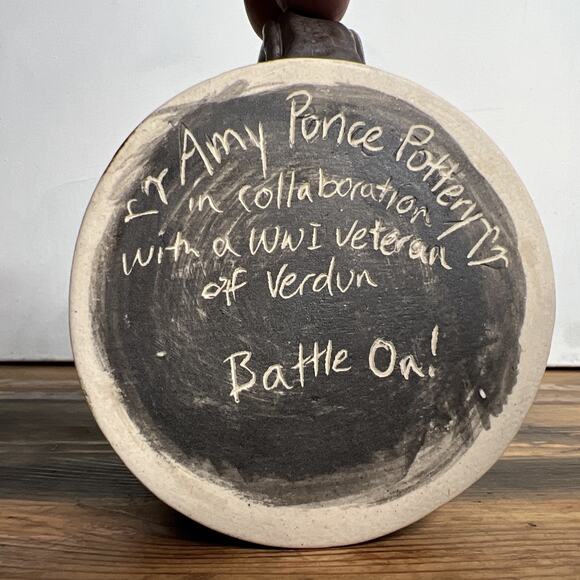 Amy Ponce Pottery
in collaboration
with a WWI veteran
off Verdun
Battle On!